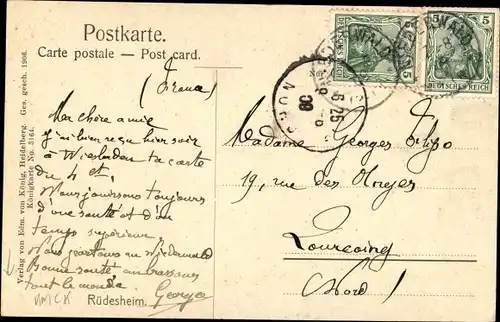 Postkarte.
Carte postale — Post card.
Verlag von Edm. von König, Heidelberg Ges. gesch. 1906.
Königkarte No. 3164.
Ma chère amie
J'ai bien reçu hier soir
à Wiesbaden ta carte
du 4 et.
Nous jouissons toujours
d'une santé et d'un
temps supérieur
Nous partons au Niederwald
Bonne santé embrassons
tout le monde
Georges
Rüdesheim.
DEUTSCHES REICH
5
5
Madame Georges
19, rue des
Tourcoing
(Nord)